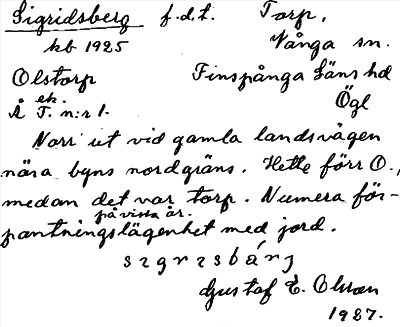 Sigridsberg f.d.t. Torp,
kb 1925 Vånga sn.
Olstorp Finspånga läns hd
Å ek. T. n:r 1. Ögl
Norr ut vid gamla landsvägen
nära byns nordgräns. Hette förr O.,
medan det var torp. Numera för-
på vissa år.
pantningslägenhet med jord.
sɪgrɪsbárj
Gustaf E. Olsson
1927.